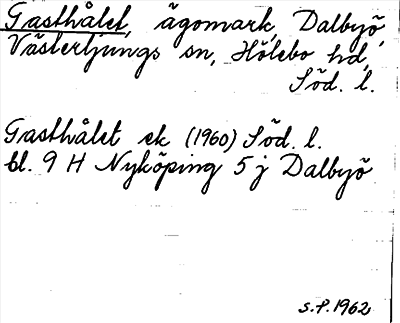 Gasthålet, ägomark, Dalbyö,
Västerljungs sn, Hölebo hd,
Söd. l.
Gasthålet ek (1960) Söd. l.
bl. 9 H Nyköping 5 j Dalbyö
S.P. 1962